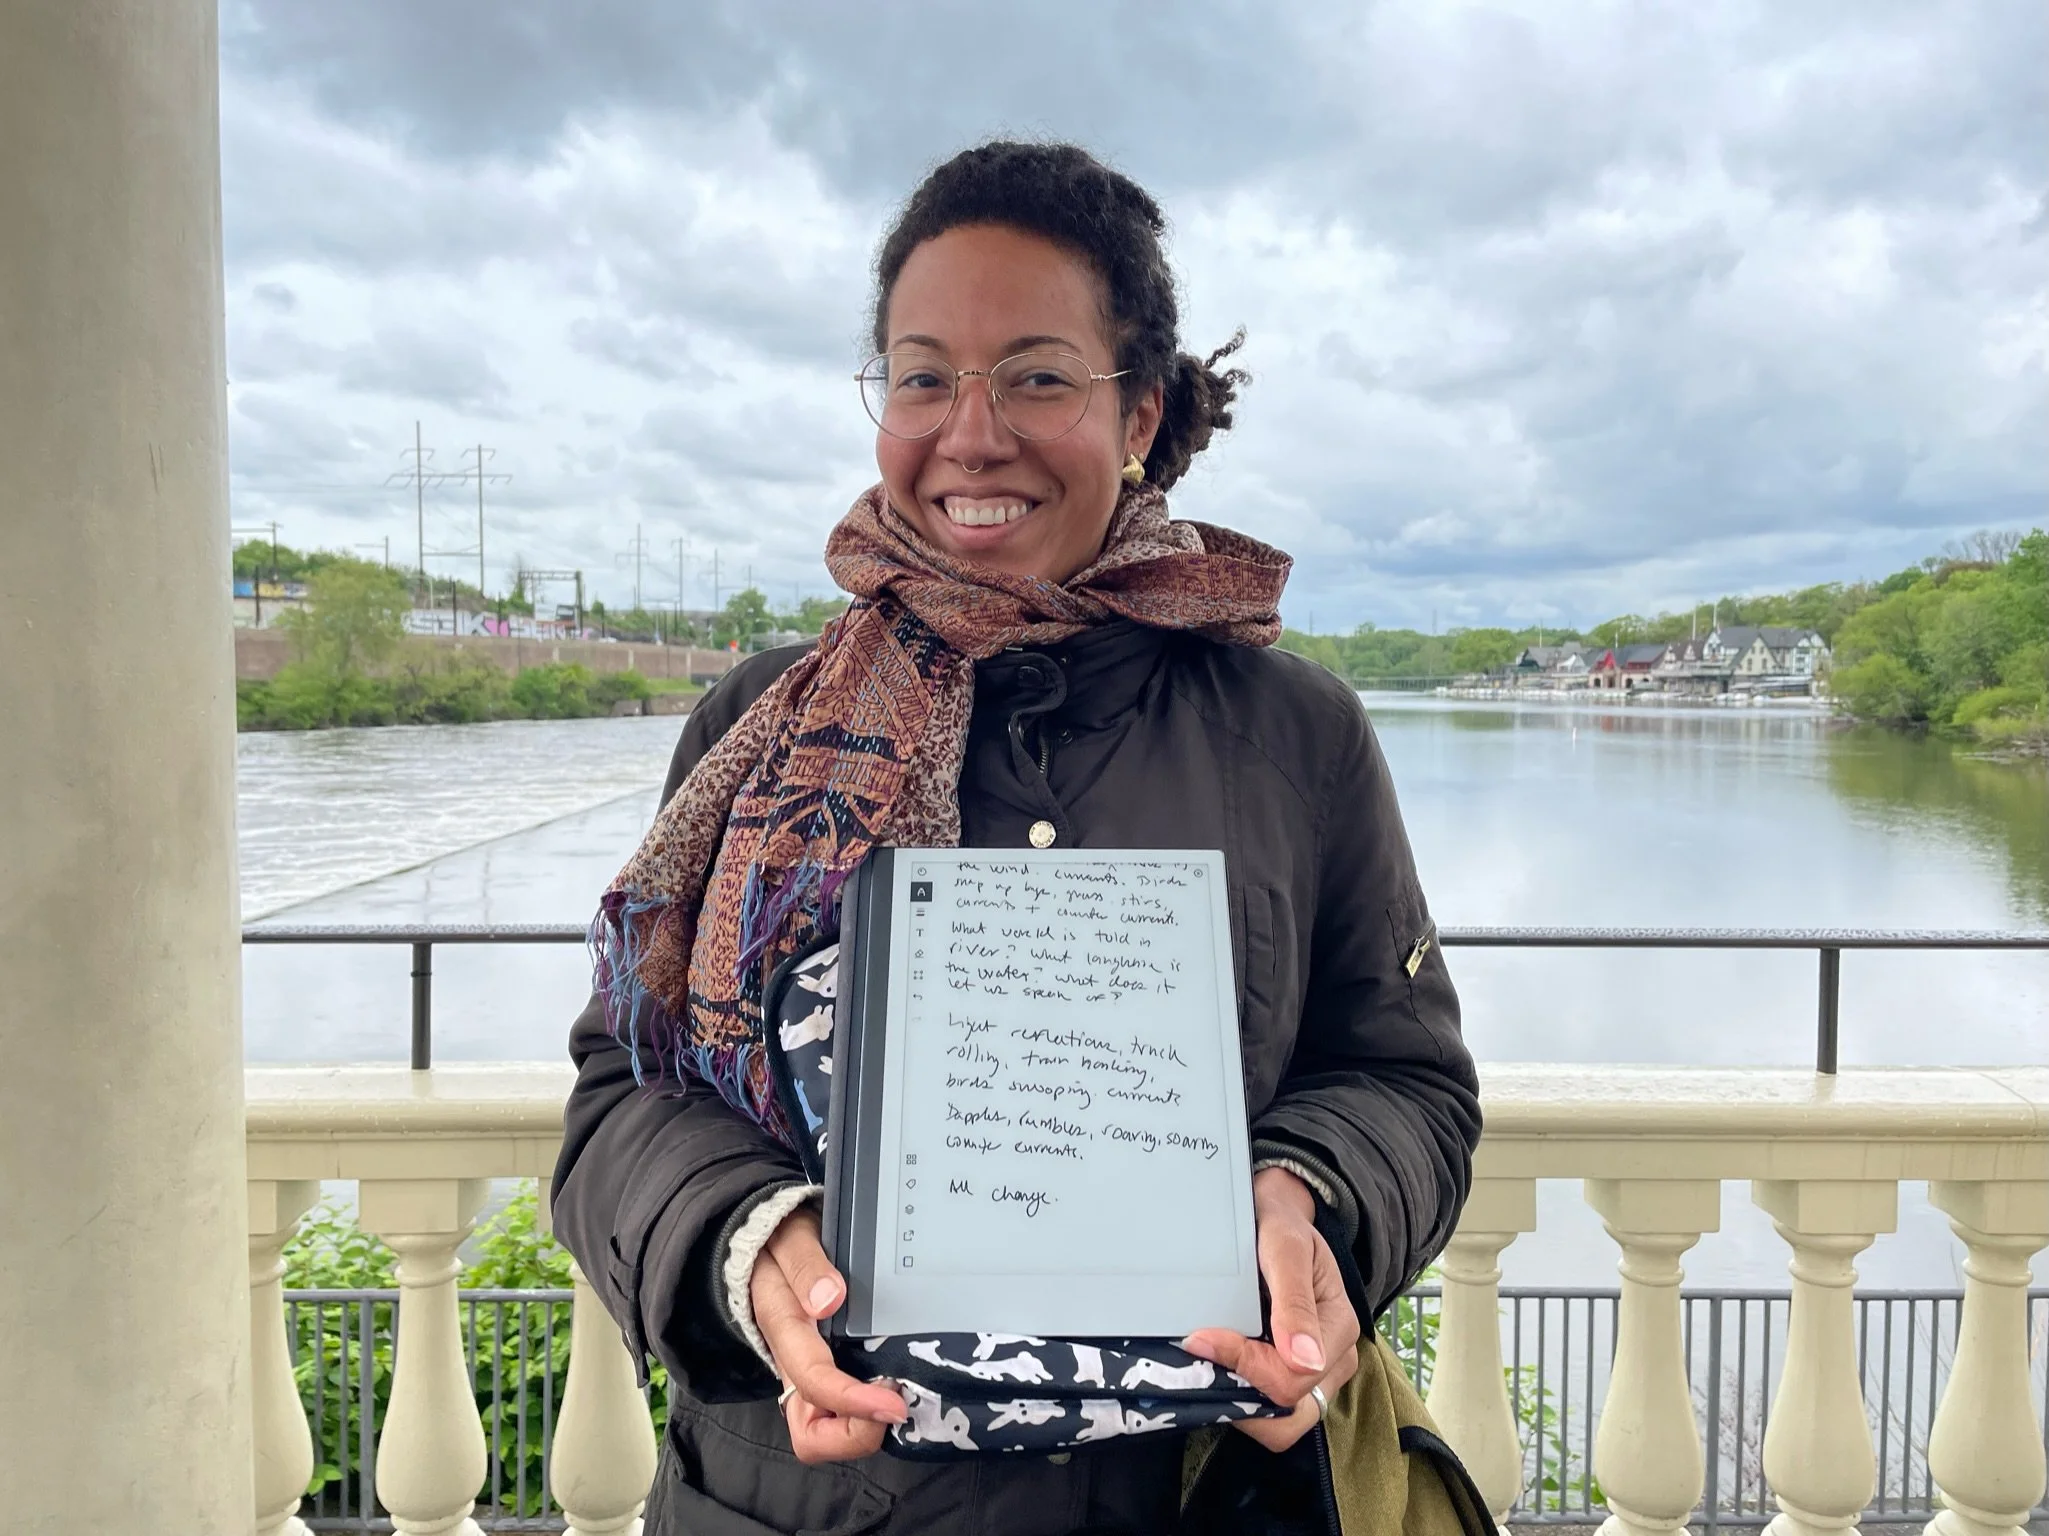 the wind. currents. Birds
snap up bugs, grass stirs,
currents + counter currents.
What world is told in
river? What language is
the water? What does it
let us speak of?
Light reflections, truck
rolling, train honking,
birds swooping. currents
Dapples, rumbles, roaring, soaring
counter currents.
All change.